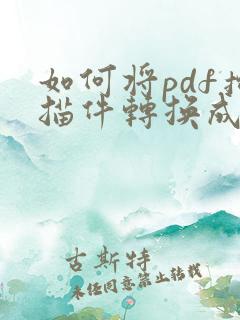 如何将pdf扫
描件轉換成
古斯特
未经同意禁止转载